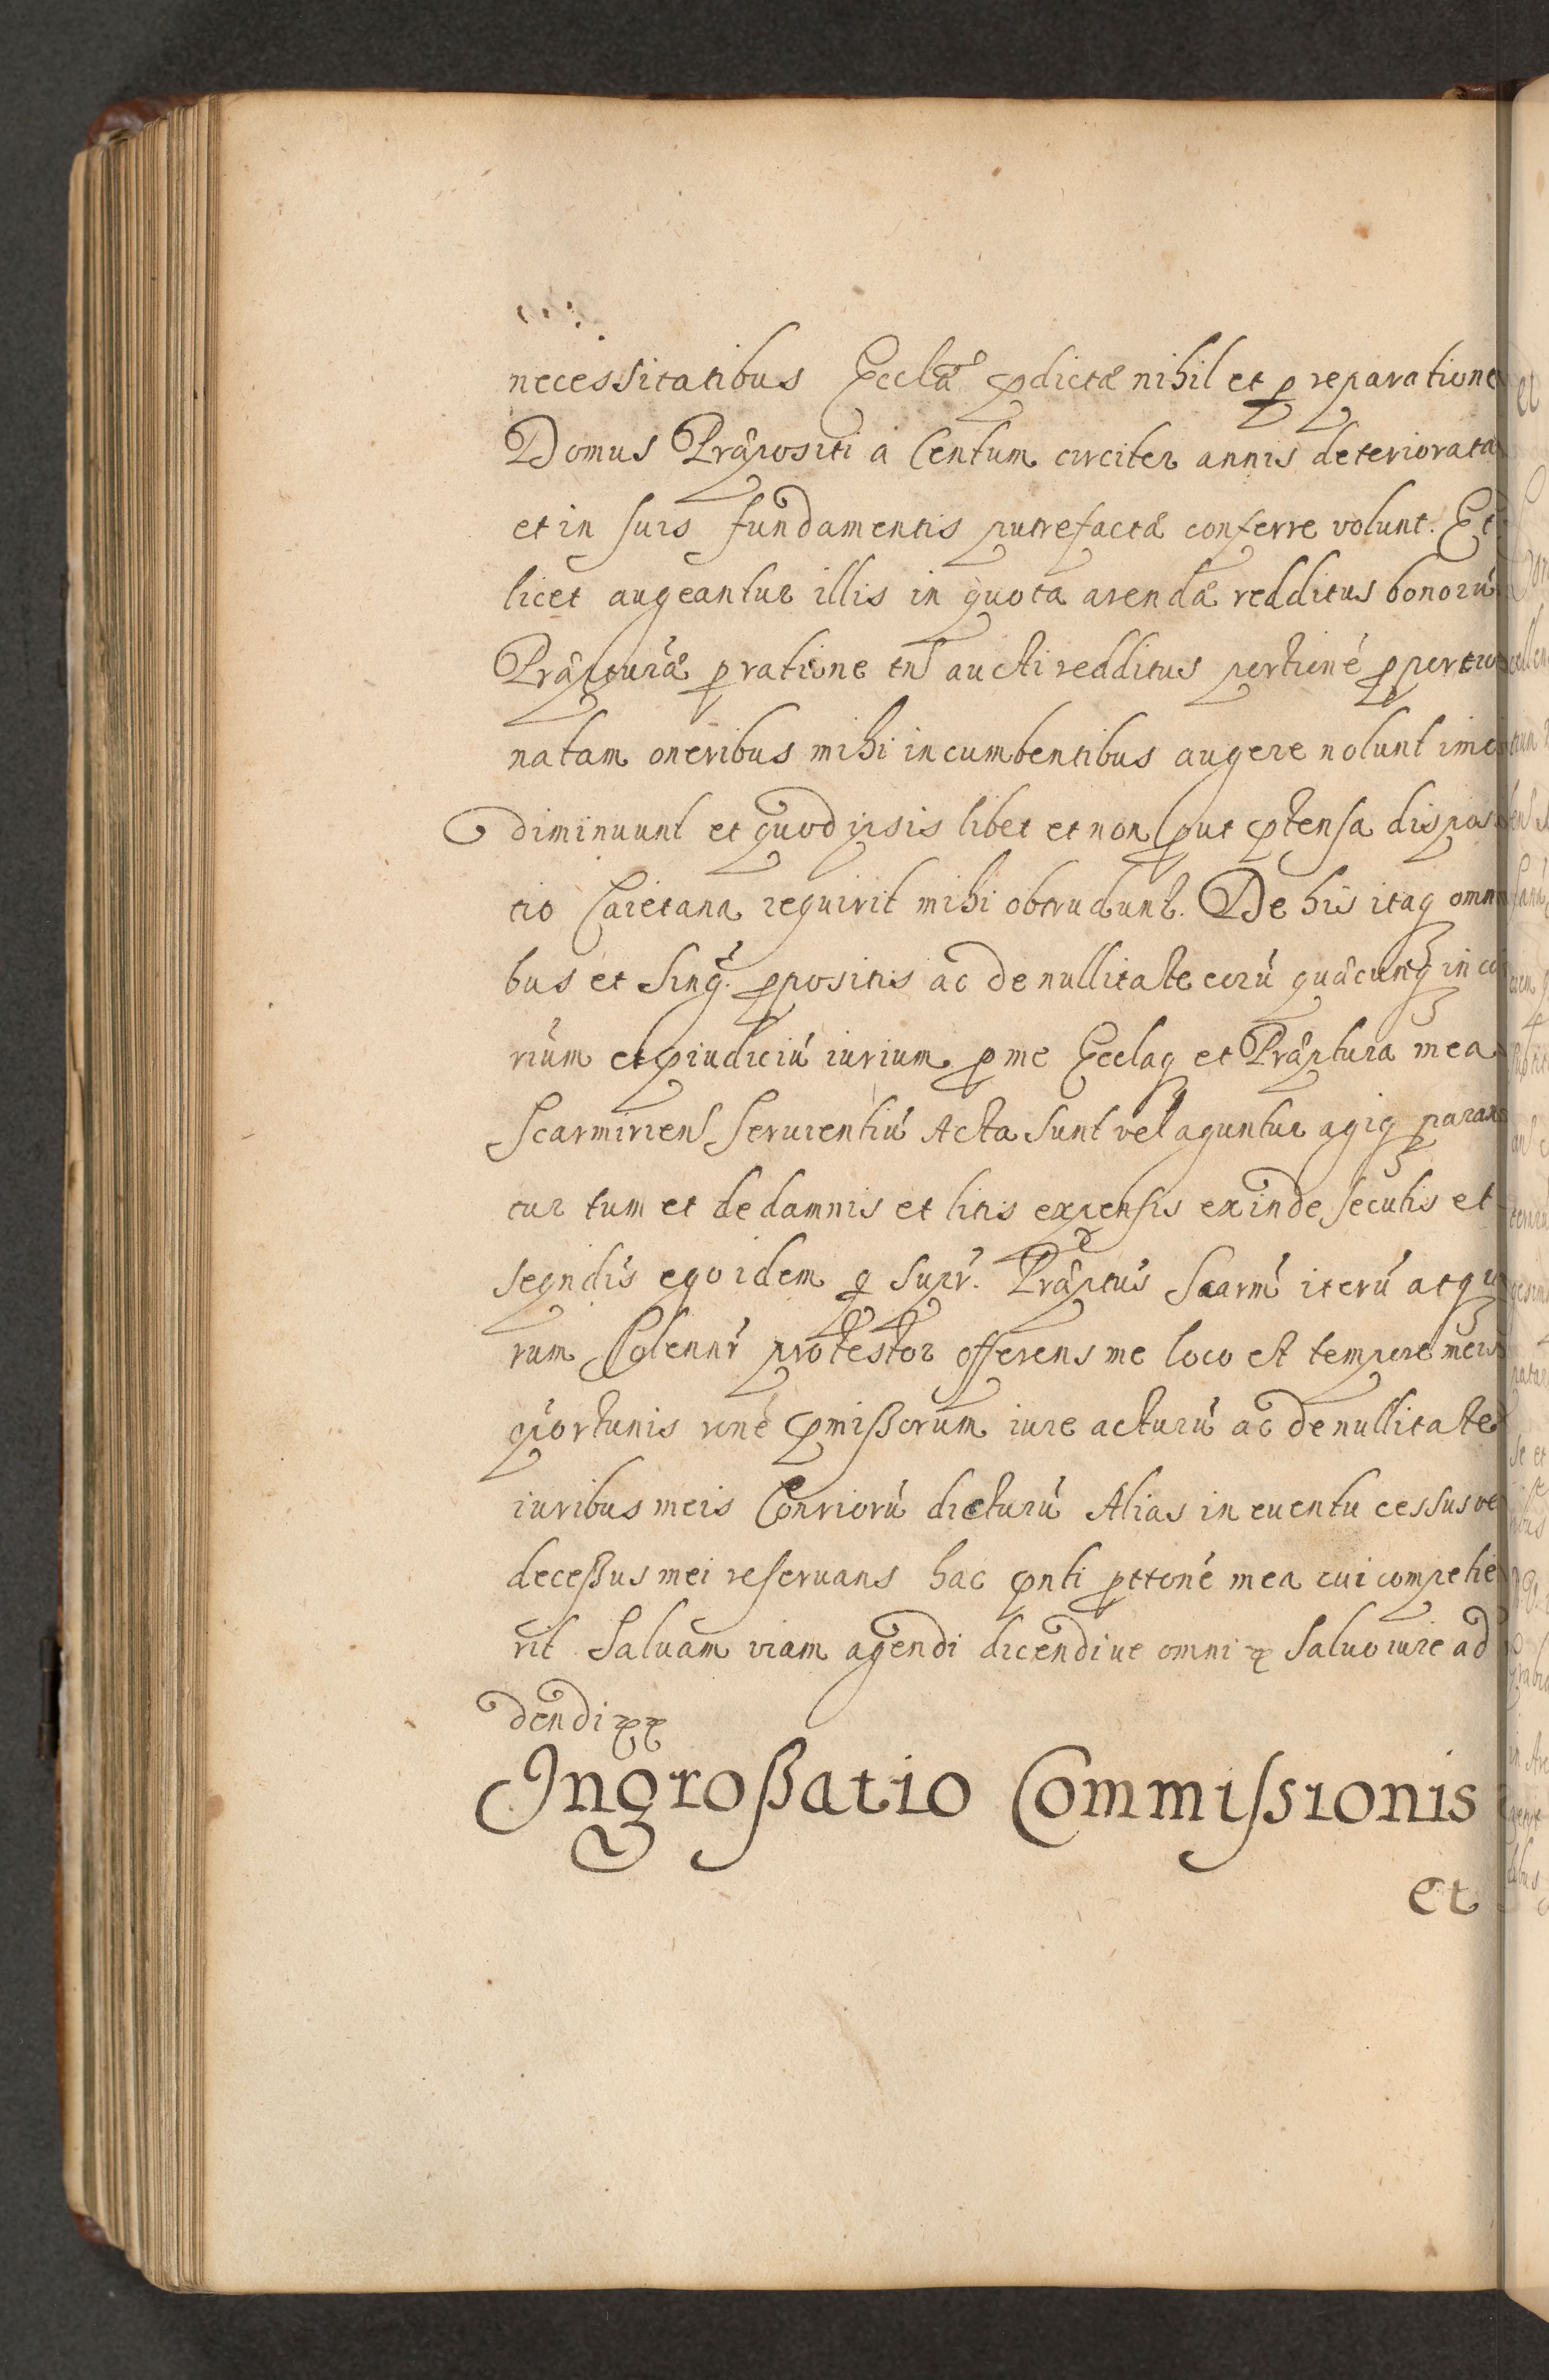 necessitatibus Ecclæ pdictæ nihil et p reparatione
Domus Præpositi a Centum circiter annis deteriorata
et in suis fundamentis putrefactæ conferre volunt. Et
licet augeantur illis in quota arendæ redditus bonorú
Præpturæ p ratione tñ aucti redditus portioné pportio
natam oneribus mihi incumbentibus augere nolunt imo
diminuunt et quod ipsis libet et non put ptensa disposi
tio Caietana requirit mihi obtrudunt. De his itaq omni
bus et Sing. ppositis ac de nullitate eorú quæcunq in
rium et piudiciú iurium p me Ecclaq et Præptura mea
Scarmirien Seruientiú Acta Sunt vel aguntur agiq paran
tur tum et de damnis et litis expensis exinde secutis et
seqndis ego idem q supr. Præptus Scarm iterú atq
rum Solennr protestor offerens me loco et tempore meis
oportunis roné pmißorum iure acturú ac de nullitate
iuribus meis Conriorú dicturú Alias in euentu cessus ve
deceßus mei reseruans hac pnti pttoné mea cui competie
rit Saluam viam agendi dicendiue omni Saluo iure ad
dendi
Ingroßatio Commissionis
et